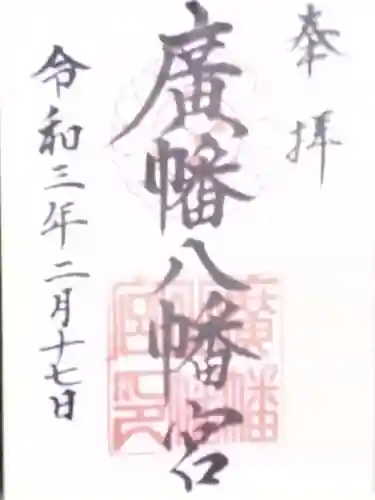 奉拝
廣幡八幡宮
令和三年二月十七日